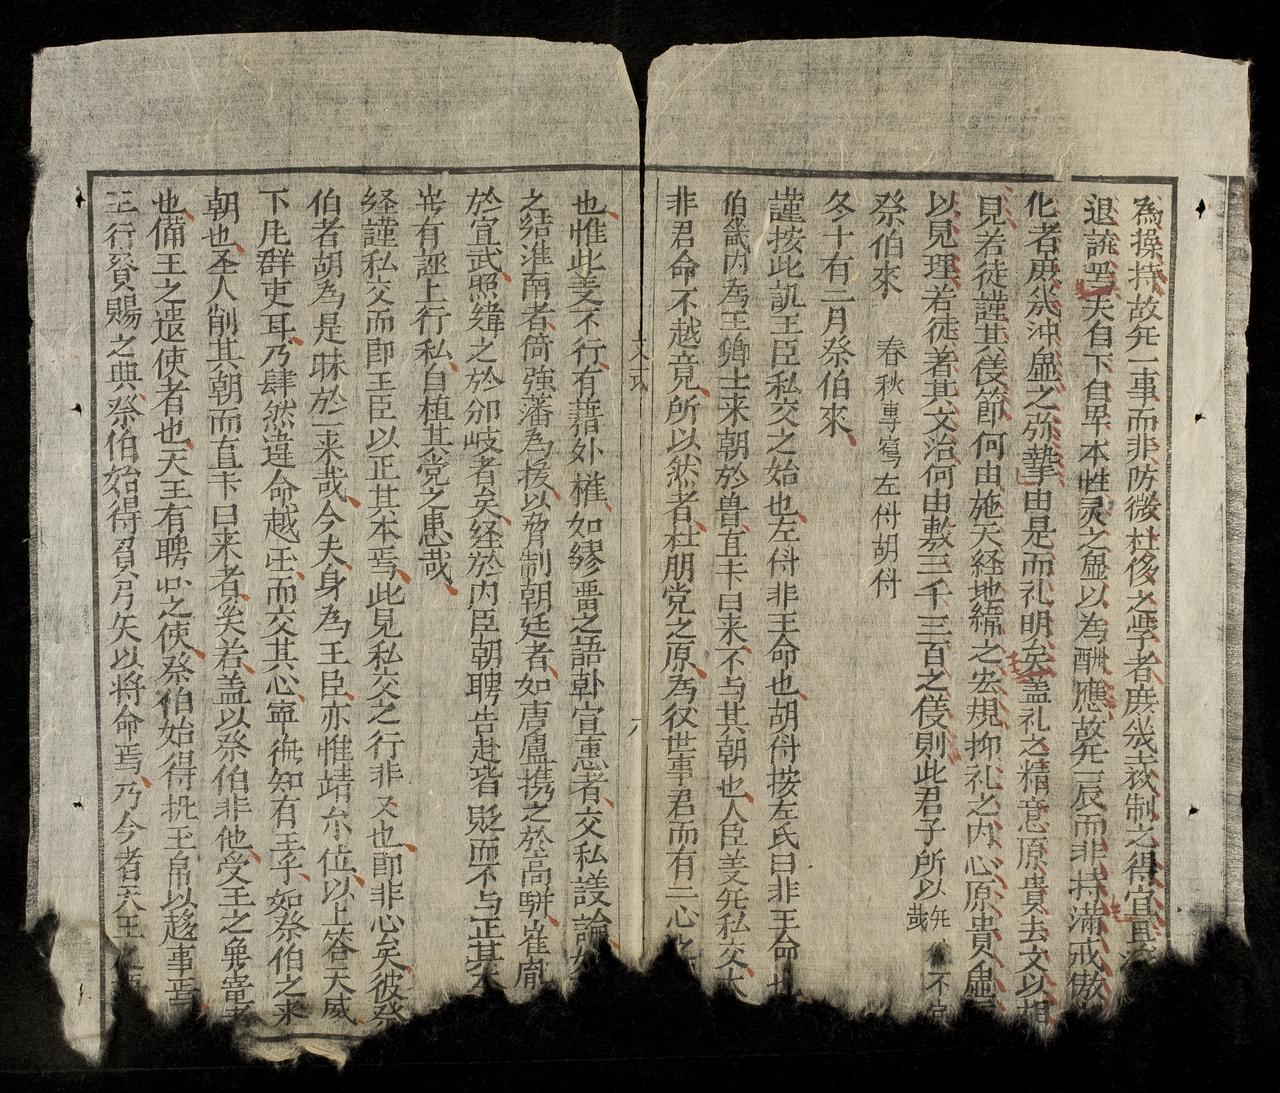 為操持故无一事而非防微杜後之学者庶幾裁制之得宜
退説焉夫自下自卑本性灵之虚以為酬應故无一辰而非持滿戒傲
化者庶幾沖虚之弥摯由是而礼明矣盖礼之精意原貴去文以相
見若徒謹其仪節何由施天経地緯之宏規抑礼之内心原貴合虚
以見理若徒著其文治何由敷三千三百之仪則此君子所以无
祭伯來 春秋專寫左付胡付
冬十有二月祭伯來
謹按此訊王臣私交之始也左付非王命也胡付按左氏曰非王命也
伯畿内為王卿士来朝於魯直卞曰来不与其朝也人臣義无私交大
非君命不越竟所以然者杜朋党之原為後世事君而有二心者
六
也惟此義不行有藉外權如繆畱之語韓宣惠者交私議論如
之結淮南者倚強藩為援以脅制朝廷者如唐盧携之於高駢崔胤
於宜武照緯之於邠岐者矣経於内臣朝聘告赴者貶而不与正其本
豈有誣上行私自植其党之患哉
経謹私交而即王臣以正其本焉此見私交之行非义也即非心矣彼祭
伯者胡為是昧於一来哉今夫身為王臣亦惟靖尔位以上答天威
下庀群吏耳乃肆然違命越王而交其心寔衹知有王乎如祭伯之来
朝也圣人削其朝而直卞曰来者矣若盖以祭伯非他受王之
也備王之遣使者也天王有聘之使祭伯始得執王帛以趍事焉
王行賚賜之典祭伯始得負弓矢以将命焉乃今者天王